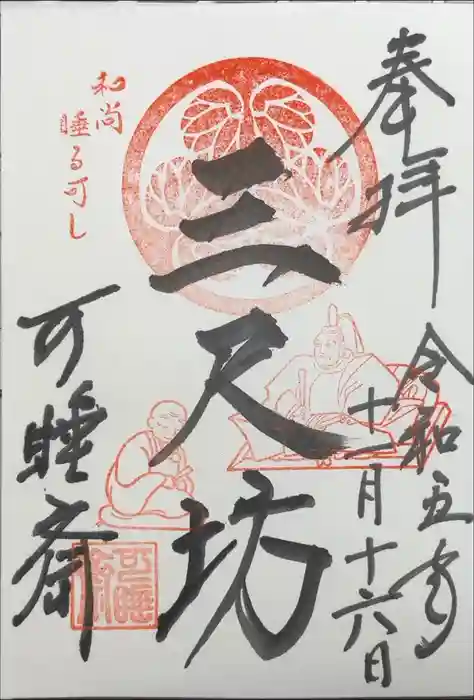 奉拝
令和五年
十一月十六日
三尺坊
和尚
睡る可し
可睡斎
可睡斎